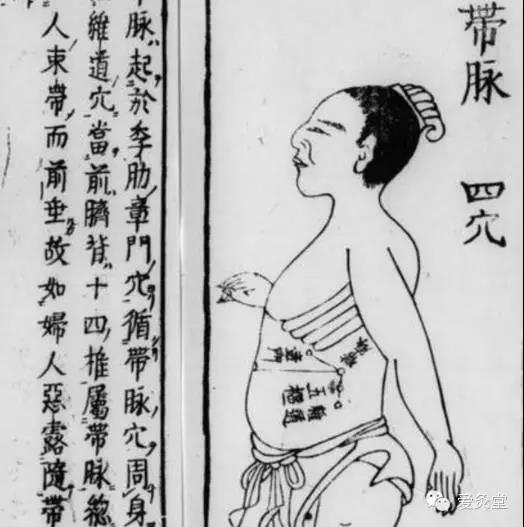 帶脉 四穴
章門
帶脉
五樞
維道
脉起於季肋章門穴循帶脉穴周身
維道穴當前臍背十四椎屬帶脉總
人束帶而前垂故如婦人惡露隨帶
爱灸堂